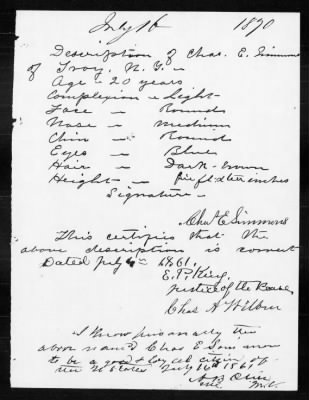 July 16 1870
Description of Chas. E. Simmons
of Troy, N. Y. —
Age — 20 years
Complexion — Light
Face — Round
Nose — Medium
Chin — Round
Eyes — Blue
Hair — Dark-brown
Height — five ft & ten inches
Signature —
Chas E Simmons
This certifies that the
above description is correct
Dated July
E. P. King,
Justice of the Peace
Chas A Wilber
I know personally the
above named Chas E Simmons
to be a good & loyal citizen of
the States July 16th